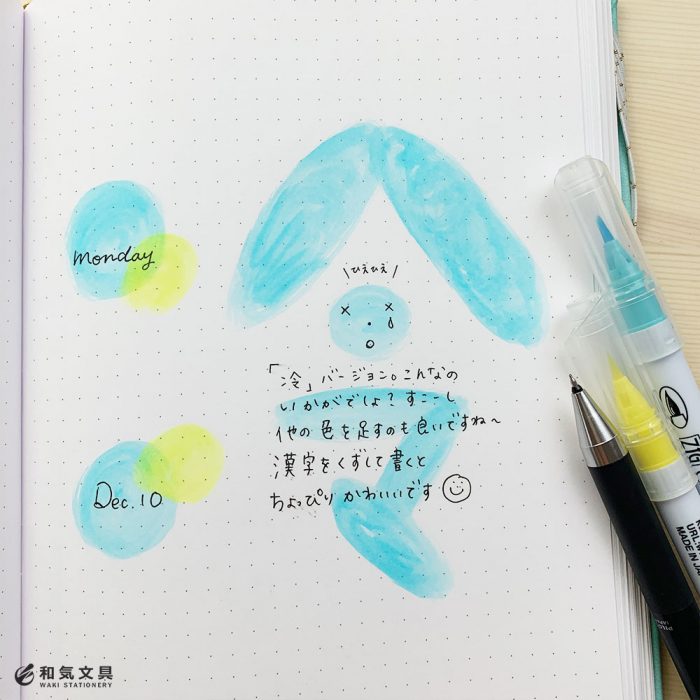 monday
Dec. 10
冷
\ひえひえ/
「冷」バージョン。こんなの
いかがでしょ？すこーし
他の色を足すのも良いですね〜
漢字をくずして書くと
ちょっぴりかわいいです
和気文具
WAKI STATIONERY
ZIG
URL:W
MADE IN JA
PILO